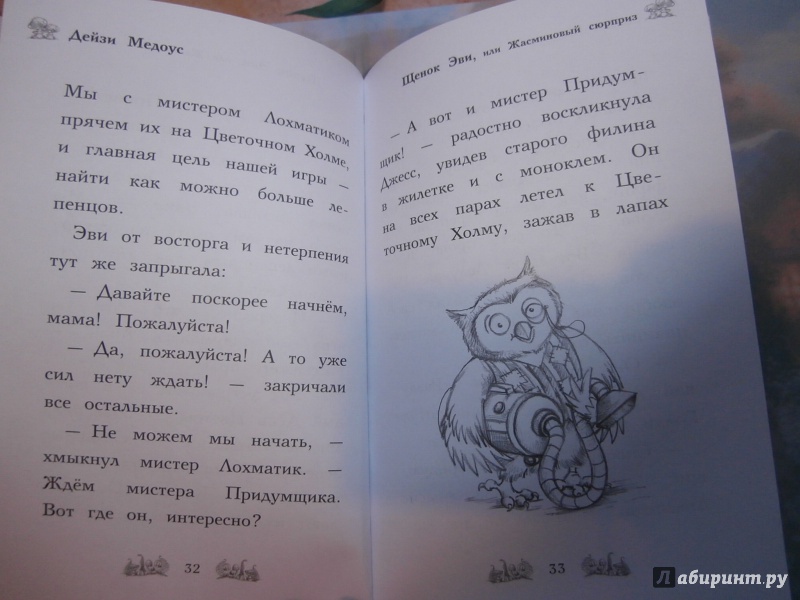 Дейзи Медоус
Мы с мистером Лохматиком
прячем их на Цветочном Холме,
и главная цель нашей игры –
найти как можно больше ле-
пенцов.
Эви от восторга и нетерпения
тут же запрыгала:
– Давайте поскорее начнём,
мама! Пожалуйста!
– Да, пожалуйста! А то уже
сил нету ждать! – закричали
все остальные.
– Не можем мы начать, –
хмыкнул мистер Лохматик. –
Ждём мистера Придумщика.
Вот где он, интересно?
32
Щенок Эви, или Жасминовый сюрприз
– А вот и мистер Придум-
щик! – радостно воскликнула
Джесс, увидев старого филина
в жилетке и с моноклем. Он
на всех парах летел к Цве-
точному Холму, зажав в лапах
33
Лабиринт.ру